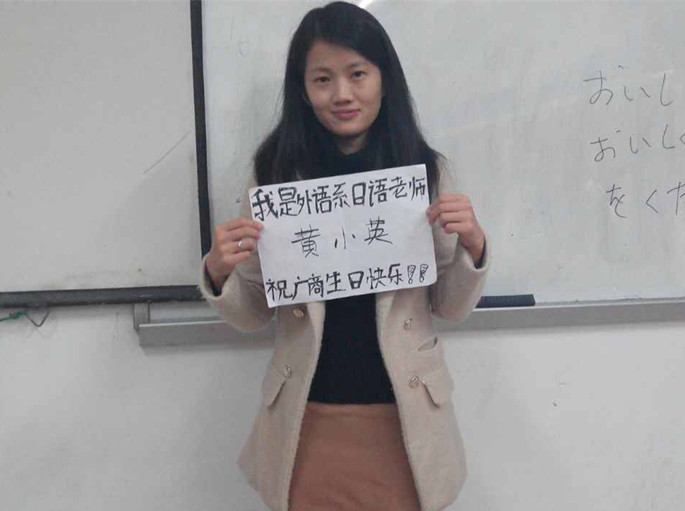 我是外语系日语老师
黄小英
祝广商生日快乐!!
おいし
おいしく
をくた